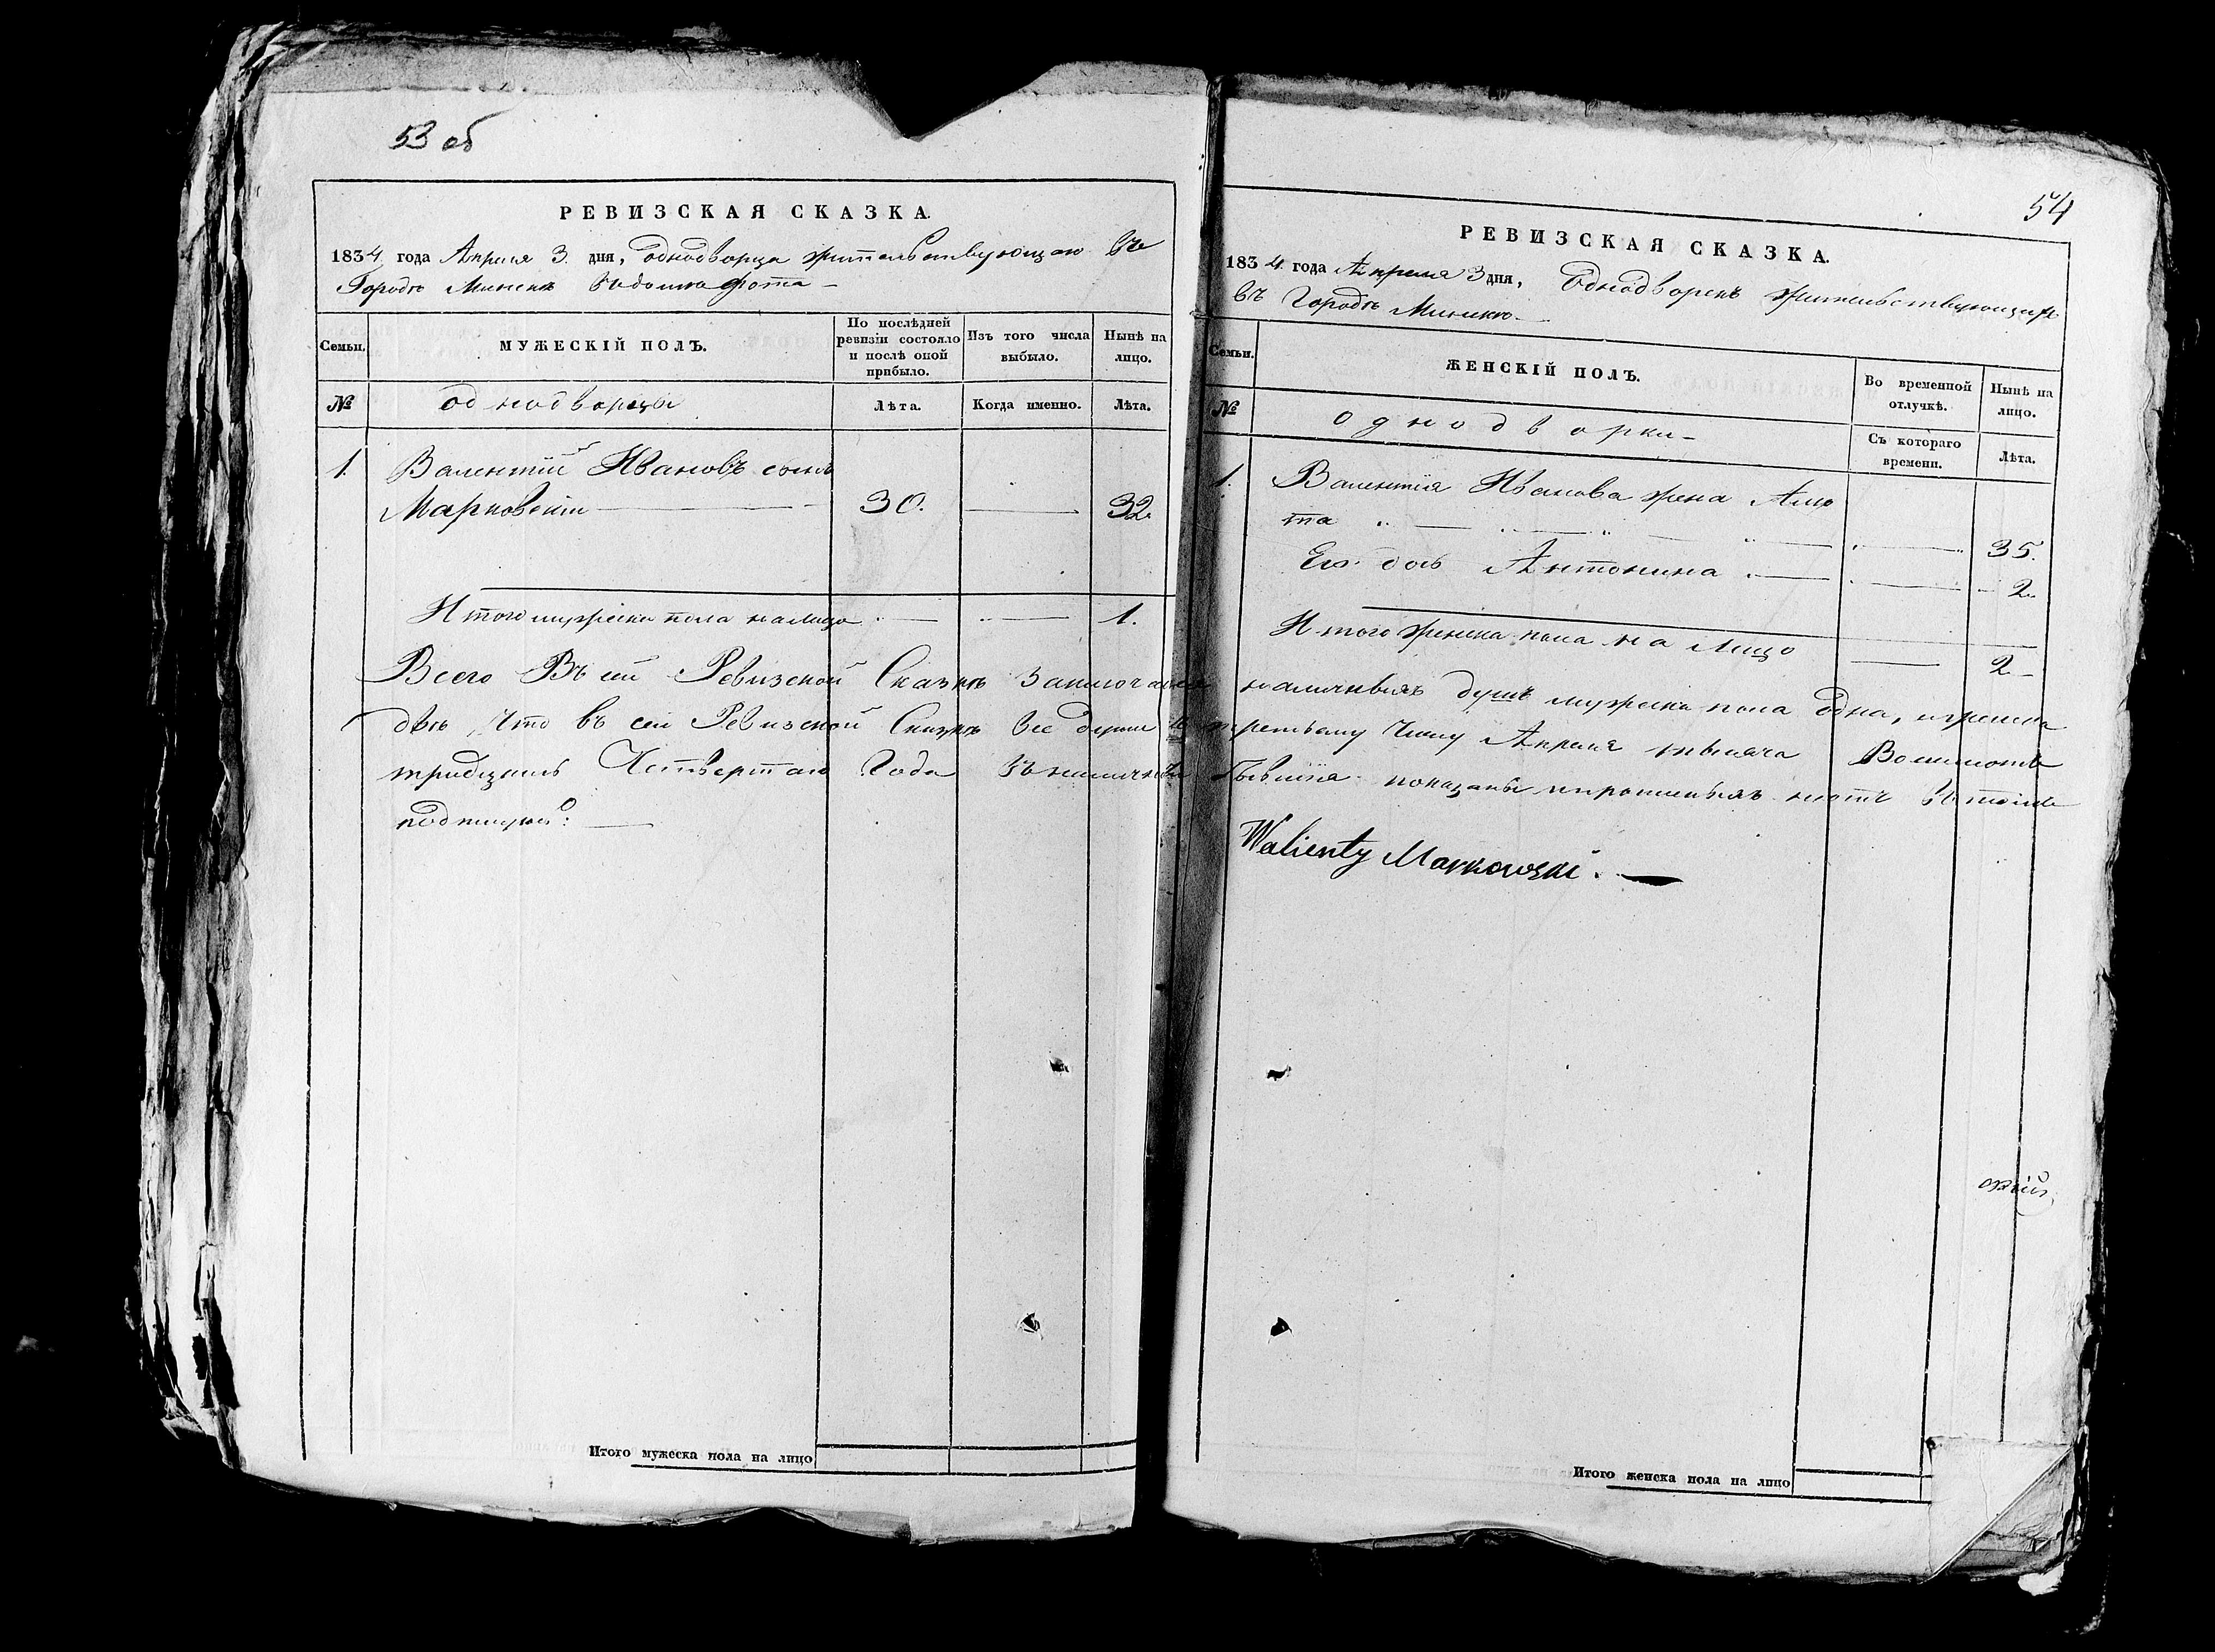 53 об
РЕВИЗСКАЯ СКАЗКА.
1834 года Апреля 3 дня, однодворца жительствующаго въ
Городѣ Минскѣ
Семьи.
МУЖЕСКІЙ ПОЛЪ.
По послѣдней ревизіи состояло и послѣ оной прибыло.
Изъ того числа выбыло.
Нынѣ на лицо.
№
однодворцы
Лѣта.
Когда именно.
Лѣта.
1. Валентій Ивановъ сынъ
Марковскій 30. 32.
Итого мужеска пола налицо 1.
Всего Въ сей Ревизской Сказкѣ Заключается наличныхъ душъ мужеска пола одна, женска
двѣ, Что въ сей Ревизской Сказкѣ все души къ третьему Числу Апреля тысяча Восимсотъ
тридцать Четвертаго Года въ наличнѣ бывшія показаны и прописныхъ нетъ въ томъ
подпишусь:
Walienty Markowski.
Итого мужеска пола на лицо
54
РЕВИЗСКАЯ СКАЗКА.
1834 года Апреля 3 дня, Однодворокъ жительствующихъ
въ Городѣ Минскѣ
Семьи.
ЖЕНСКІЙ ПОЛЪ.
Во временной отлучкѣ.
Нынѣ на лицо.
№
однодворки
Съ котораго времени.
Лѣта.
1. Валентія Иванова жена
та 35.
Его дочь Антонина 2.
Итого женска пола на лицо 2
Итого женска пола на лицо